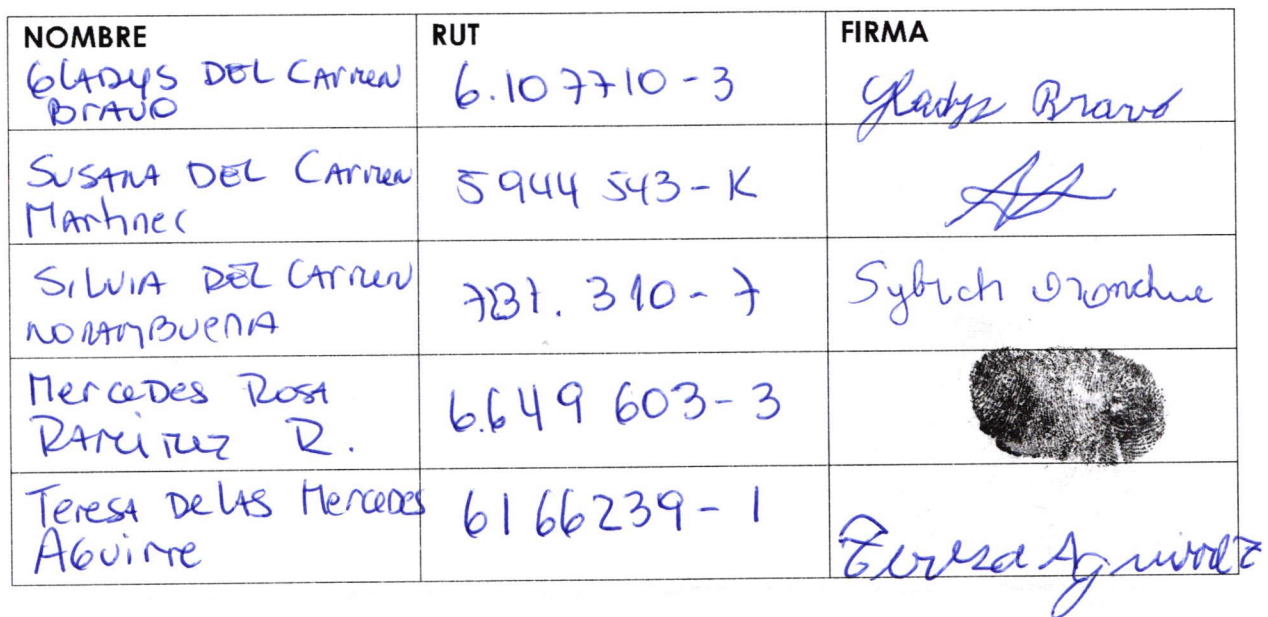 NOMBRE RUT FIRMA
GLADYS DEL CARMEN
BRAVO
6.107710-3
Gladys Bravo
SUSANA DEL CARMEN
Martinec
5944543-K
SILVIA DEL CARMEN
NORAMBUENA
Mercedes Rosa
RAMIREZ R.
6.649603-3
Teresa De las Mercedes
Aguirre
6166239-1
Teresa